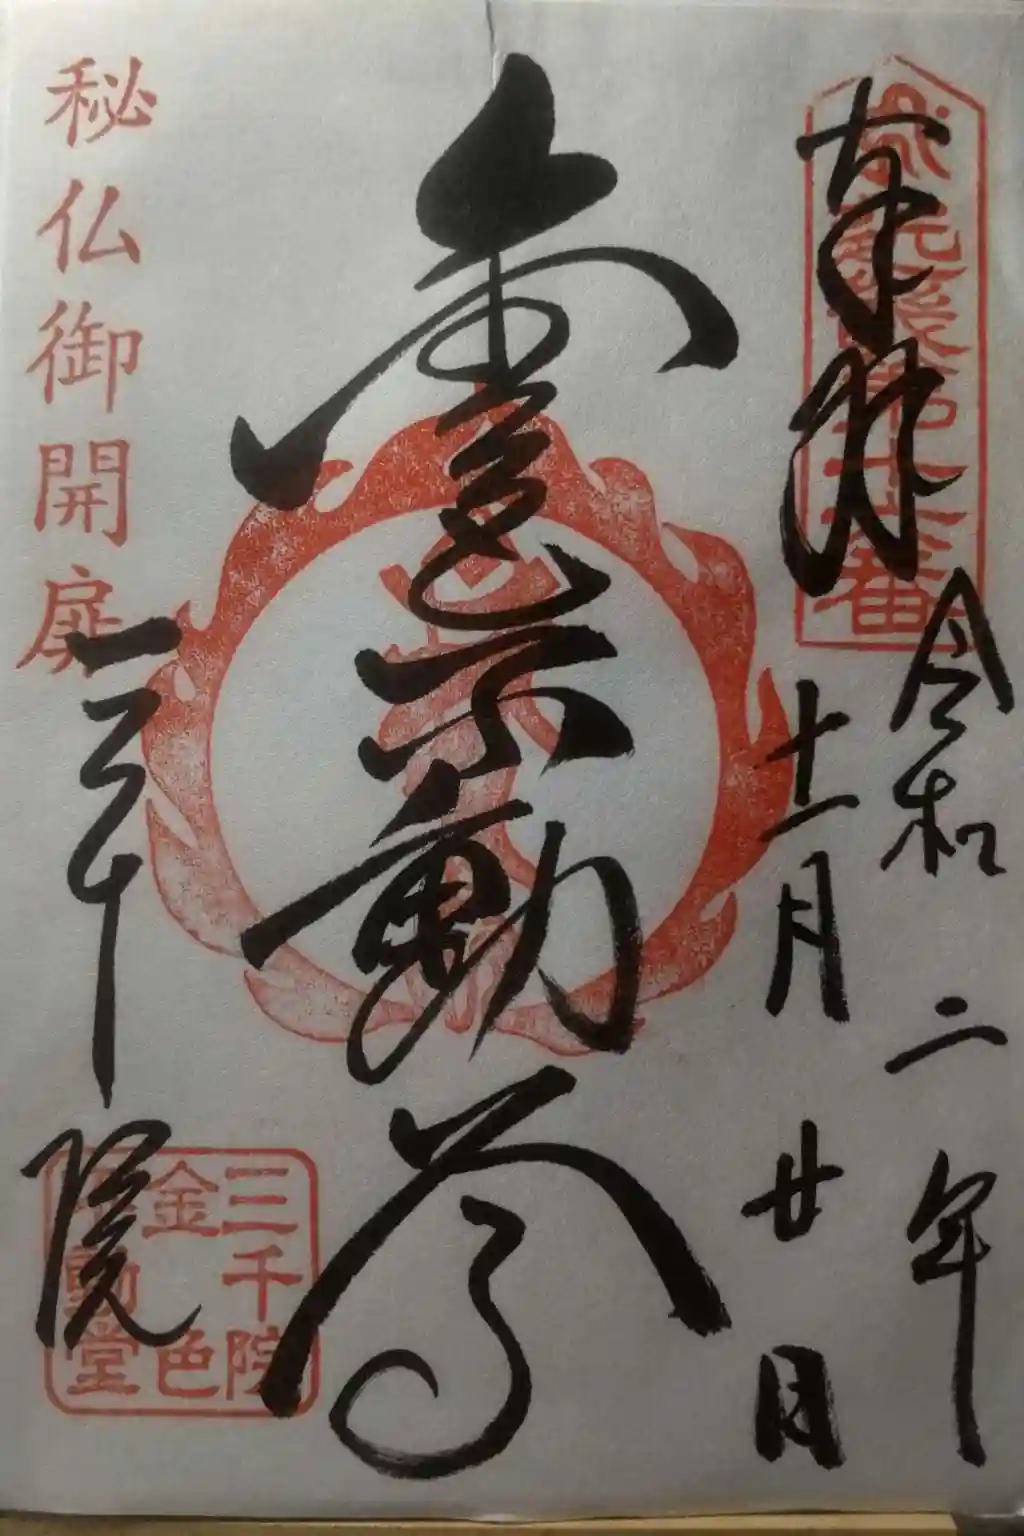 奉拝
令和二年
十一月廿日
金色不動尊
秘仏御開扉
三千院
三千院
金色
不動堂